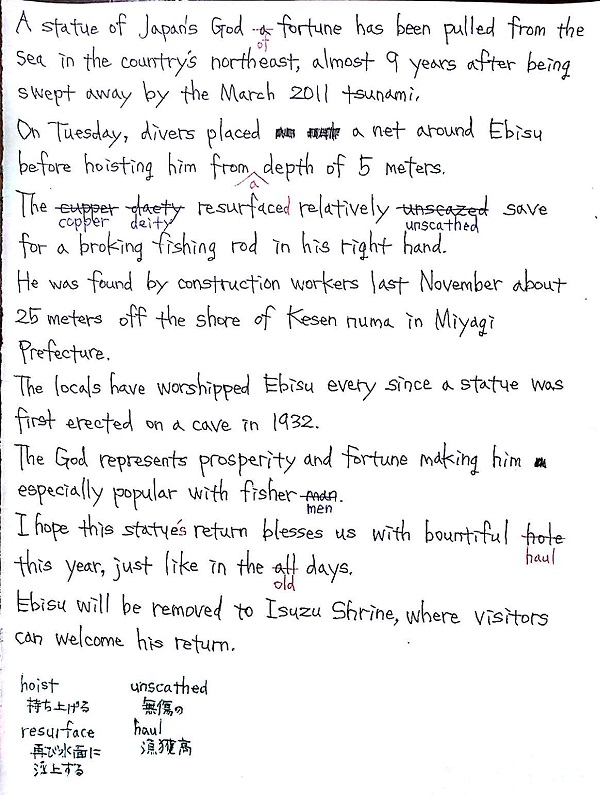 A statue of Japan's God a fortune has been pulled from the
of
sea in the country's northeast, almost 9 years after being
swept away by the March 2011 tsunami.
On Tuesday, divers placed a net around Ebisu
before hoisting him from depth of 5 meters.
a
The cupper daety resurfaced relatively unscazed save
copper deity unscathed
for a broking fishing rod in his right hand.
He was found by construction workers last November about
25 meters off the shore of Kesen numa in Miyagi
Prefecture.
The locals have worshipped Ebisu every since a statue was
first erected on a cave in 1932.
The God represents prosperity and fortune making him
especially popular with fisher man.
men
I hope this statue's return blesses us with bountiful hole
haul
this year, just like in the all days.
old
Ebisu will be removed to Isuzu Shrine, where visitors
can welcome his return.
hoist unscathed
持ち上げる 無傷の
resurface haul
再び水面に 漁獲高
浮上する